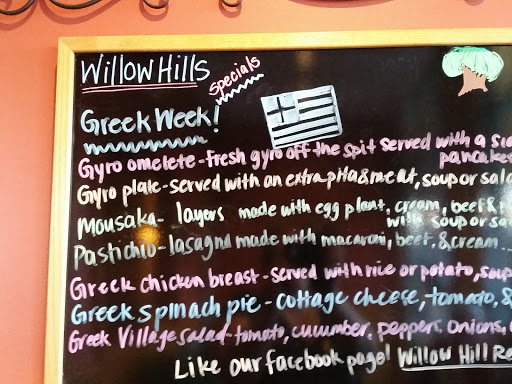 Willow Hills
Specials
Greek Week!
Gyro omelete - Fresh gyro off the spit served with a
pancake
Gyro plate - served with an extra pita & meat, soup or
Mousaka - layers made with egg plant, cream, beef &
with soup or
Pastichio - lasagna made with macaroni, beef, & cream...
Greek chicken breast - served with rice or potato, soup
Greek spinach pie - cottage cheese, tomato, &
Greek Village salad - tomato, cucumber, peppers, onions,
Like our facebook page! Willow Hill